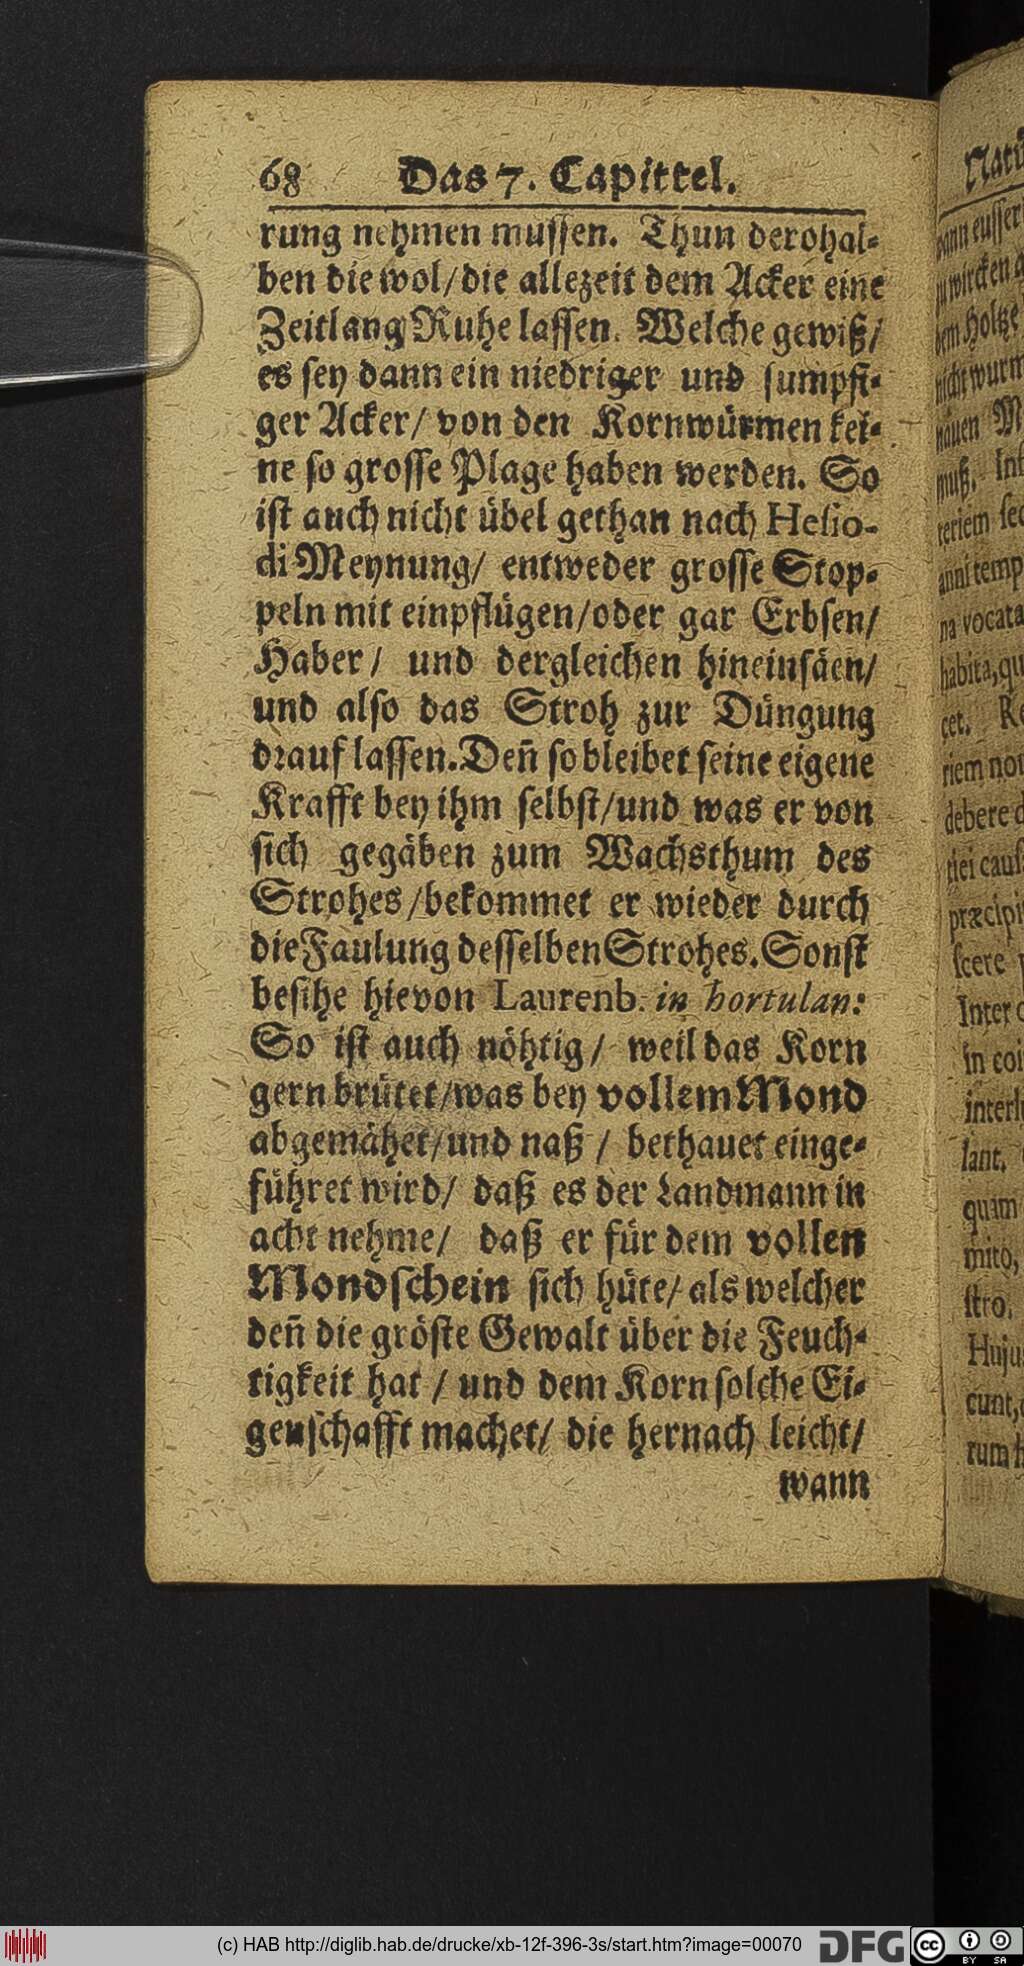 68 Das 7. Capittel.
rung nehmen mussen. Thun derohal-
ben die wol/die allezeit dem Acker eine
Zeitlang Ruhe lassen. Welche gewiß/
es sey dann ein niedriger und sumpfi-
ger Acker/ von den Kornwürmen kei-
ne so grosse Plage haben werden. So
ist auch nicht übel gethan nach Hesio-
di Meynung/ entweder grosse Stop-
peln mit einpflügen/oder gar Erbsen/
Haber/ und dergleichen hineinsäen/
und also das Stroh zur Düngung
drauf lassen. Deñ so bleibet seine eigene
Krafft bey ihm selbst/und was er von
sich gegäben zum Wachsthum des
Strohes/bekommet er wieder durch
die Faulung desselben Strohes. Sonst
besihe hievon Laurenb. in hortulan:
So ist auch nöhtig/ weil das Korn
gern brütet/was bey vollem Mond
abgemähet/und naß / bethauet einge-
führet wird/ daß es der Landmann in
acht nehme/ daß er für dem vollen
Mondschein sich hüte/als welcher
deñ die gröste Gewalt über die Feuch-
tigkeit hat / und dem Korn solche Ei-
genschafft machet/ die hernach leicht/
wann
Natu
dann eusser
zu wircken
dem Holtze
nicht wurm
näuen M
muß. Inf
teriem sec
anni temp
na vocata
habita, qu
cet. Re
riem non
debere
riei caus
præcipi
scere
Inter
in coi
interlu
lant.
quam
mito,
stro.
Hujus
cunt,
rum
(c) HAB http://diglib.hab.de/drucke/xb-12f-396-3s/start.htm?image=00070 DFG cc BY SA